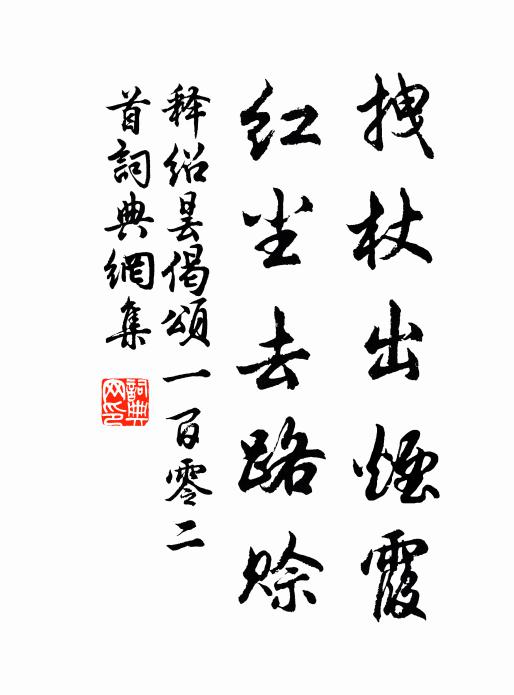 拽杖出煙霞
红尘去路赊
释绍昙偈頌一百零二
首詞典網集
詞典網印